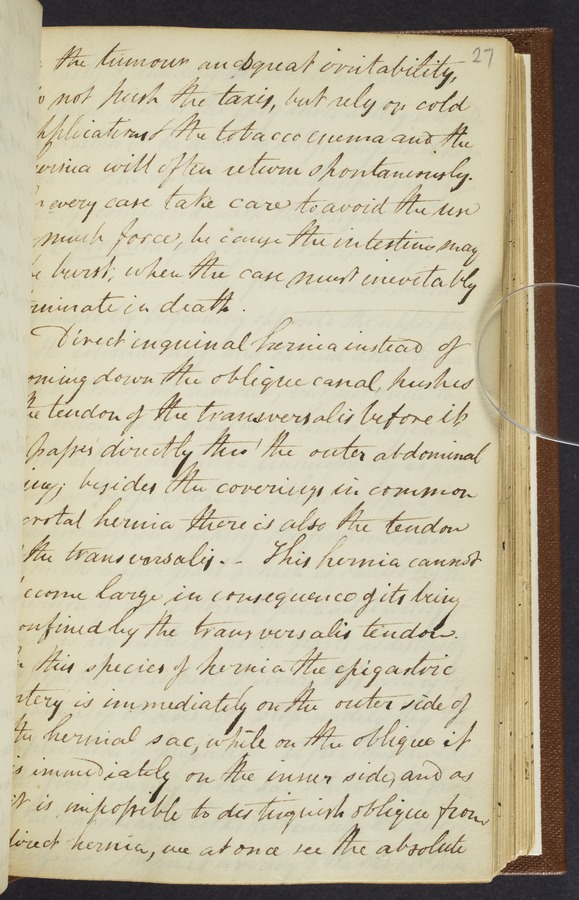 27
the tumour and great irritability,
not push the taxis, but rely on cold
applications & the tobacco enema and the
hernia will often return spontaneously.
In every case take care to avoid the use
much force, because the intestine may
be burst, when the case must inevitably
minate in death.
Direct inguinal hernia instead of
oming down the oblique canal, pushes
the tendon of the transversalis before it
passes directly thro' the outer abdominal
ing; besides the coverings in common
crotal hernia there is also the tendon
the transversalis. - This hernia cannot
ecome large in consequence of its being
onfined by the transversalis tendon.
In this species of hernia the epigastric
rtery is immediately on the outer side of
the hernial sac, while on the oblique it
is immediately on the inner side, and as
it is impossible to distinguish oblique from
direct hernia, we at once see the absolute